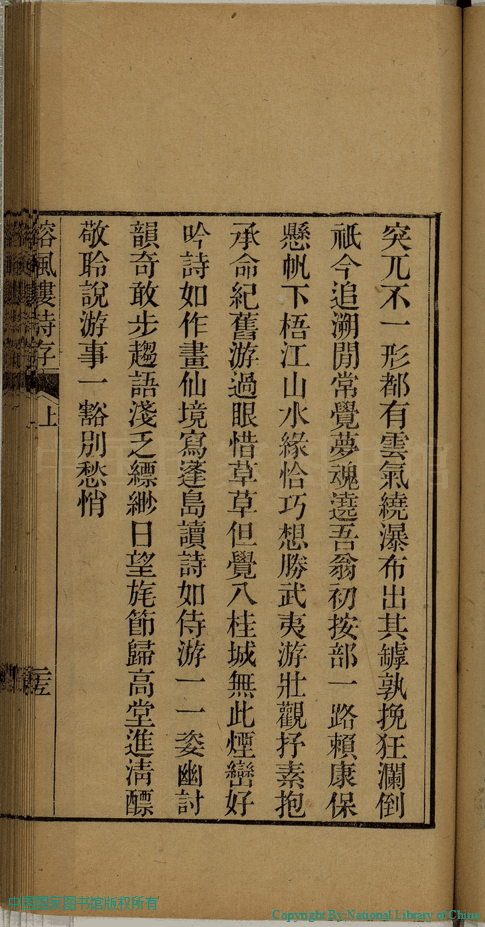 突兀不一形都有雲氣繞瀑布出其罅孰挽狂瀾倒
祇今追溯閒常覺夢魂遶吾翁初按部一路賴康保
懸帆下梧江山水緣恰巧想勝武夷游壯觀抒素抱
承命紀舊游過眼惜草草但覺八桂城無此煙巒好
吟詩如作畫仙境寫蓬島讀詩如侍游一一姿幽討
韻奇敢步趨語淺乏縹緲日望旄節歸高堂進淸醥
敬聆說游事一豁別愁悄
榕風樓詩存
上
二五
中国国家图书馆版权所有
Copyright By National Library of China